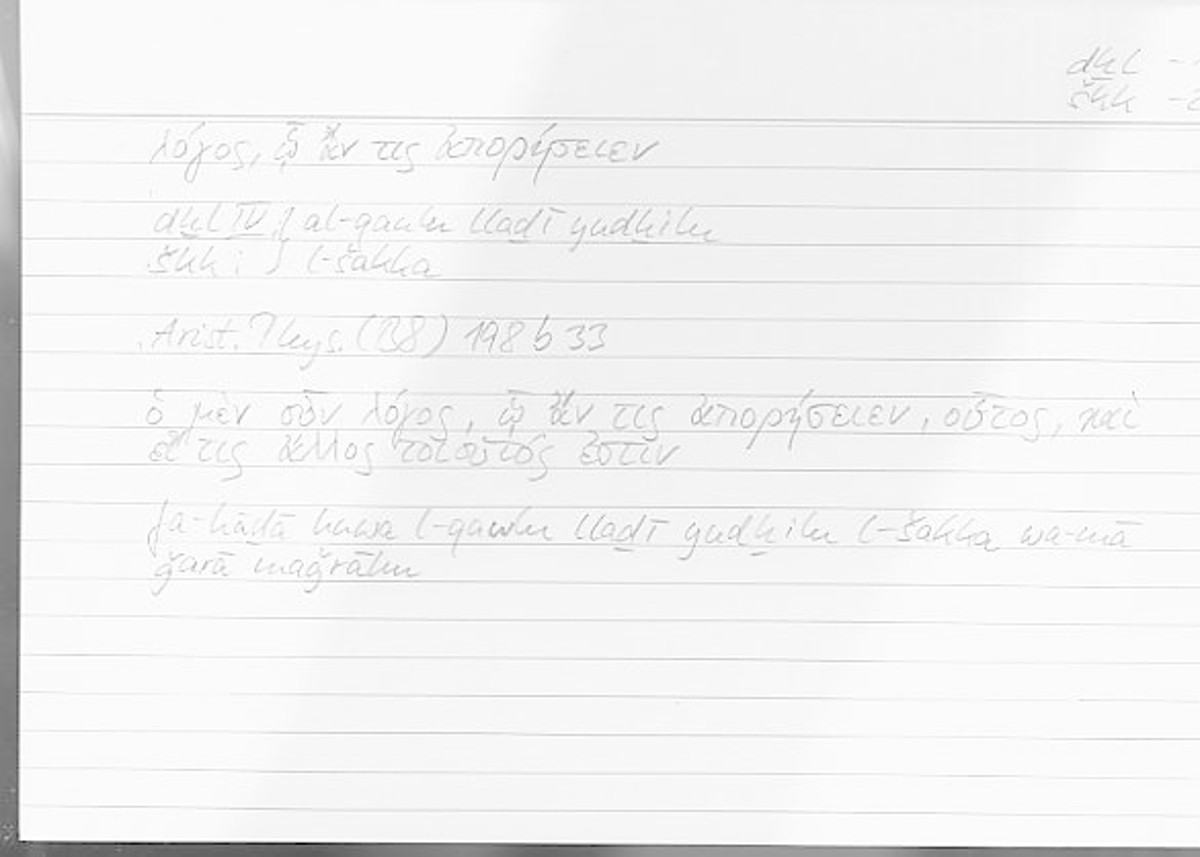 dḫl -
škk -
λόγος, ᾧ ἄν τις ἀπορήσειεν
dḫl IV } al-qaulu lladī yudḫilu
škk : } l-šakka
Arist. Phys. (B8) 198 b 33
ὁ μὲν οὖν λόγος, ᾧ ἄν τις ἀπορήσειεν, οὗτος, καὶ
εἴ τις ἄλλος τοιοῦτός ἐστιν
fa-hāḏā huwa l-qawlu llaḏī yudḫilu l-šakka wa-mā
ǧarā maǧrāhu